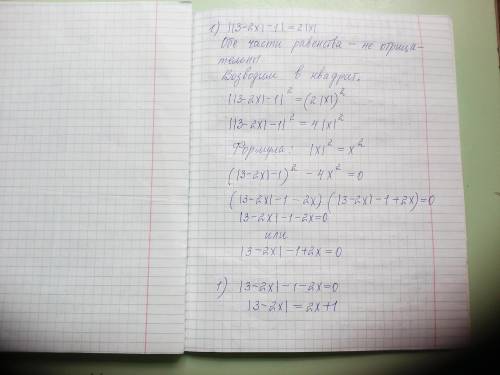 1) ||3-2x|-1| = 2|x|
Обе части равенства - не отрица-
тельны!
Возводим в квадрат.
||3-2x|-1|² = (2|x|)²
||3-2x|-1|² = 4|x|²
Формула: |x|² = x²
(|3-2x|-1)² - 4x² = 0
(|3-2x|-1-2x)(|3-2x|-1+2x)=0
|3-2x|-1-2x=0
или
|3-2x|-1+2x=0
1) |3-2x|-1-2x=0
|3-2x| = 2x+1